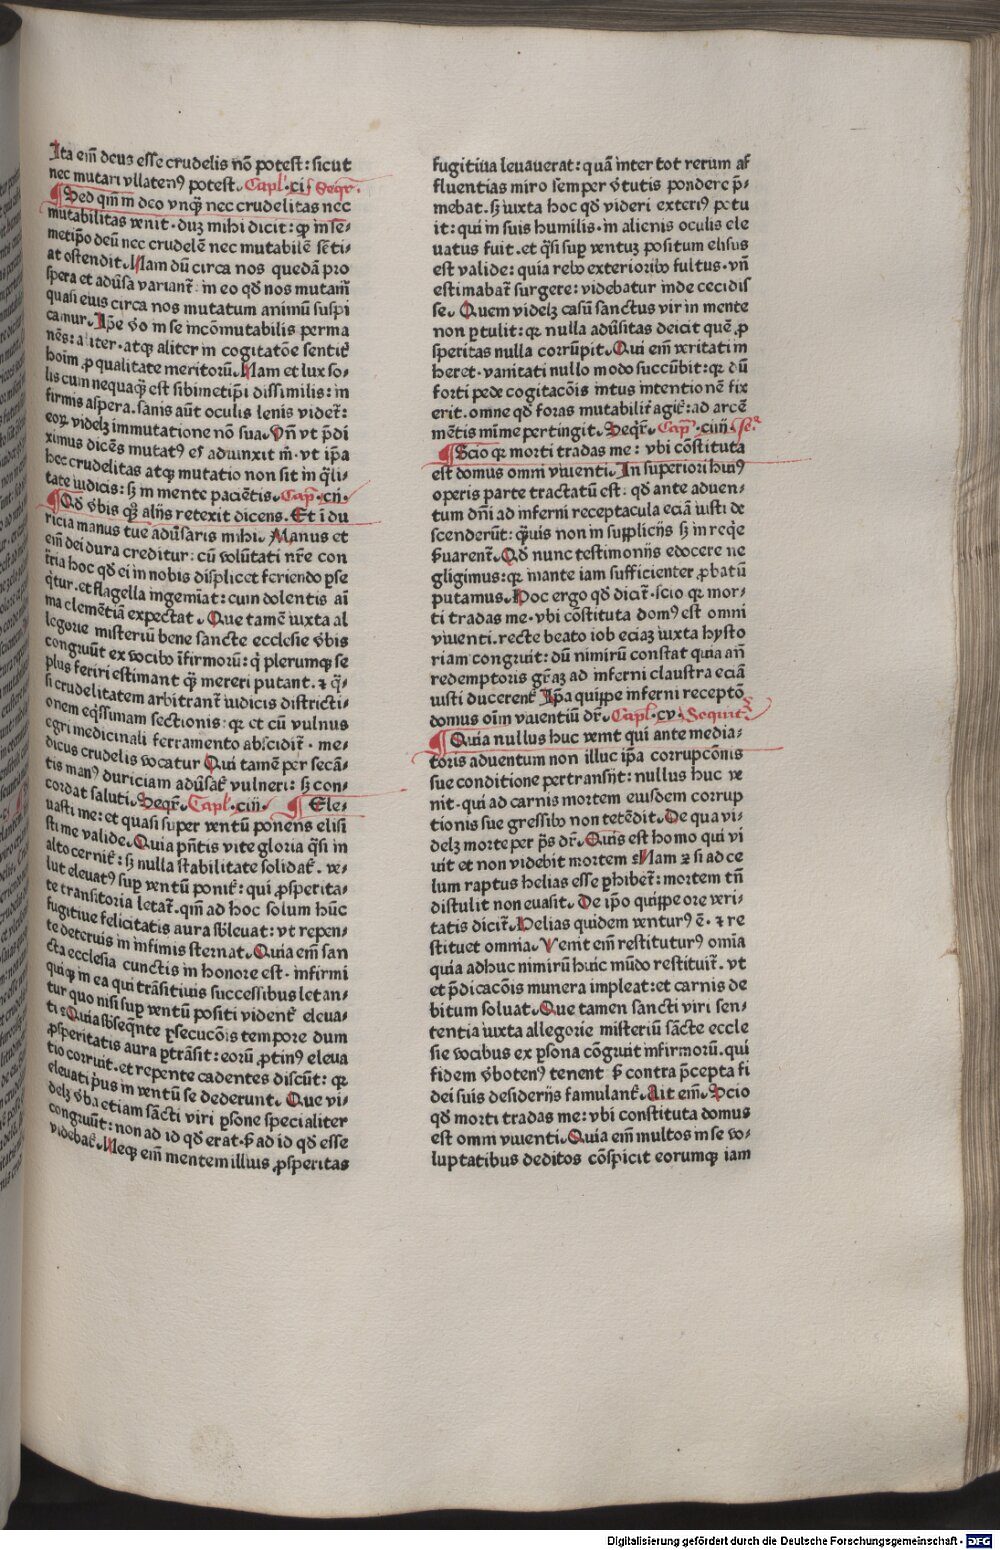 Ita em̄ deus esse crudelis nō potest: sicut
nec mutari vllatenꝰ potest. Capl̓ .cij Seqr̄.
¶ Sed qm̄ in deo vnqͣ nec crudelitas nec
mutabilitas venit. duꝫ mihi dicit: qꝛ in se-
metip̄o deū nec crudelē nec mutabilē sēti-
at ostendit. Nam dū circa nos quedā pro
spera et adūsa variant᷑: in eo qd̄ nos mutam̄
quasi eius circa nos mutatum animū suspi
camur. Ip̄e v̄o in se incōmutabilis perma
nēs: aliter. atqꝫ aliter in cogitatōe sentit᷑
hoim ꝓ qualitate meritorū. Nam et lux so-
lis cum nequaqͣ est sibimetip̄i dissimilis: in
firmis aspera. sanis aūt oculis lenis videt᷑:
eoꝝ videlꝫ immutatione nō sua. Vn̄ vt p̄di
ximus dicēs mutatꝰ es adiunxit m̄. vt ip̄a
hec crudelitas atqꝫ mutatio non sit in qͣli-
tate iudicis: sꝫ in mente paciētis. Cap̄ .ciij.
¶ Qd̄ v̄bis qꝫ alijs retexit dicens. Et ī du
ricia manus tue adūsaris mihi. Manus et
em̄ dei dura creditur: cū volūtati nr̄e con
tr̄ia hoc qd̄ ei in nobis displicet feriendo ꝑse
qͥtur. et flagella ingemīat: cum dolentis ai
ma clemētiā expectat. Que tamē iuxta al
legorie misteriū bene sancte ecclesie v̄bis
congruūt ex vocibꝰ īfirmorū: qͥ plerumqꝫ se
plus feriri estimant qͣ mereri putant. ⁊ qͣ-
si crudelitatem arbitrant᷑ iudicis districti-
onem eqͥssimam sectionis: qꝛ et cū vulnus
egri medicinali ferramento abscidit᷑. me-
dicus crudelis vocatur Qui tamē per secā-
tis manꝰ duriciam adūsat᷑ vulneri: sꝫ con-
cordat saluti. Seqr̄. Capl̓ .ciiij. ¶ Ele-
uasti me: et quasi super ventū ponens elisi
sti me valide. Quia pn̄tis vite gloria qͣsi in
alto cernit᷑: sꝫ nulla stabilitate solidat᷑. ve-
lut eleuatꝰ suꝑ ventū ponit᷑: qui ꝓsperita-
te transitoria letat᷑. qm̄ ad hoc solum hūc
fugitiue felicitatis aura sb̄leuat: vt repen-
te deterius in infimis sternat. Quia em̄ san
cta ecclesia cunctis in honore est. infirmi
quiqꝫ in ea qui trāsitiuis successibus letan-
tur quo nisi suꝑ ventū positi vident᷑ eleua-
ti: Quia sb̄seqn̄te ꝑsecucōis tempore dum
ꝓsperitatis aura ꝑtrāsit: eorū ꝓtinꝰ eleua
tio corruit. et repente cadentes discūt: qꝛ
eleuati pͥus in ventū se dederunt. Que vi-
delꝫ v̄ba etiam sācti viri ꝑsone specialiter
congruūt: non ad id qd̄ erat. sꝫ ad id qd̄ esse
videbat᷑. Neqꝫ em̄ mentem illius ꝓsperitas
fugitiua leuauerat: quā inter tot rerum af
fluentias miro semper v̄tutis pondere p̄-
mebat. sꝫ iuxta hoc qd̄ videri exteriꝰ potu
it: qui in suis humilis. in alienis oculis ele
uatus fuit. et qͣsi suꝑ ventuꝫ positum elisus
est valide: quia rebꝰ exterioribꝰ fultus. vn̄
estimabat᷑ surgere: videbatur inde cecidis
se. Quem videlꝫ casū sanctus vir in mente
non ꝑtulit: qꝛ nulla adūsitas deicit quē ꝓ
speritas nulla corrūpit. Qui em̄ veritati in
heret. vanitati nullo modo succūbit: qꝛ dū
forti pede cogitacōis intus intentionē fix
erit. omne qd̄ foras mutabilit᷑ agit᷑: ad arcē
mētis mīme pertingit. Seqr̄. Cap̄ .ciiij. Seqr̄
¶ Scio qꝛ morti tradas me: vbi cōstituta
est domus omni viuenti. In superiori huiꝰ
operis parte tractatū est. qd̄ ante aduen-
tum dn̄i ad inferni receptacula eciā iusti de
scenderūt: qͣuis non in supplicijs sꝫ in reqͥe
ẜuarent᷑. Qd̄ nunc testimonijs edocere ne
gligimus: qꝛ inante iam sufficienter ꝓbatū
putamus. Hoc ergo qd̄ dicit᷑. scio qꝛ mor-
ti tradas me. vbi cōstituta domꝰ est omni
viuenti. recte beato iob eciaꝫ iuxta hysto
riam congruit: dū nimirū constat quia an̄
redemptoris gr̄aꝫ ad inferni claustra eciā
iusti ducerent᷑ Ip̄a quippe inferni receptō
domus oīm viuentiū dr̄. Capl̓ .cv. Sequit᷑
¶ Quia nullus huc venit qui ante media-
toris aduentum non illuc ip̄a corrupcōnis
sue conditione pertransijt: nullus huc ve
nit. qui ad carnis mortem eiusdem corrup
tionis sue gressibꝰ non tetēdit. De qua vi-
delꝫ morte per pͣs dr̄. Quis est homo qui vi
uit et non videbit mortem: Nam ⁊ si ad ce
lum raptus helias esse ꝑhibet᷑: mortem tn̄
distulit non euasit. De ip̄o quippe ore veri-
tatis dicit᷑. Helias quidem venturꝰ ē. ⁊ re
stituet omnia. Venit em̄ restituturꝰ omīa
quia adhuc nimirū huic mūdo restituit᷑. vt
et p̄dicacōis munera impleat: et carnis de
bitum soluat. Que tamen sancti viri sen-
tentia iuxta allegorie misteriū sācte eccle
sie vocibus ex ꝑsona cōgruit infirmorū. qui
fidem v̄botenꝰ tenent sꝫ contra p̄cepta fi
dei suis desiderijs famulant᷑. Ait em̄. Scio
qd̄ morti tradas me: vbi constituta domus
est omni viuenti. Quia em̄ multos in se vo-
luptatibus deditos cōspicit eorumqꝫ iam
Digitalisierung gefördert durch die Deutsche Forschungsgemeinschaft - DFG